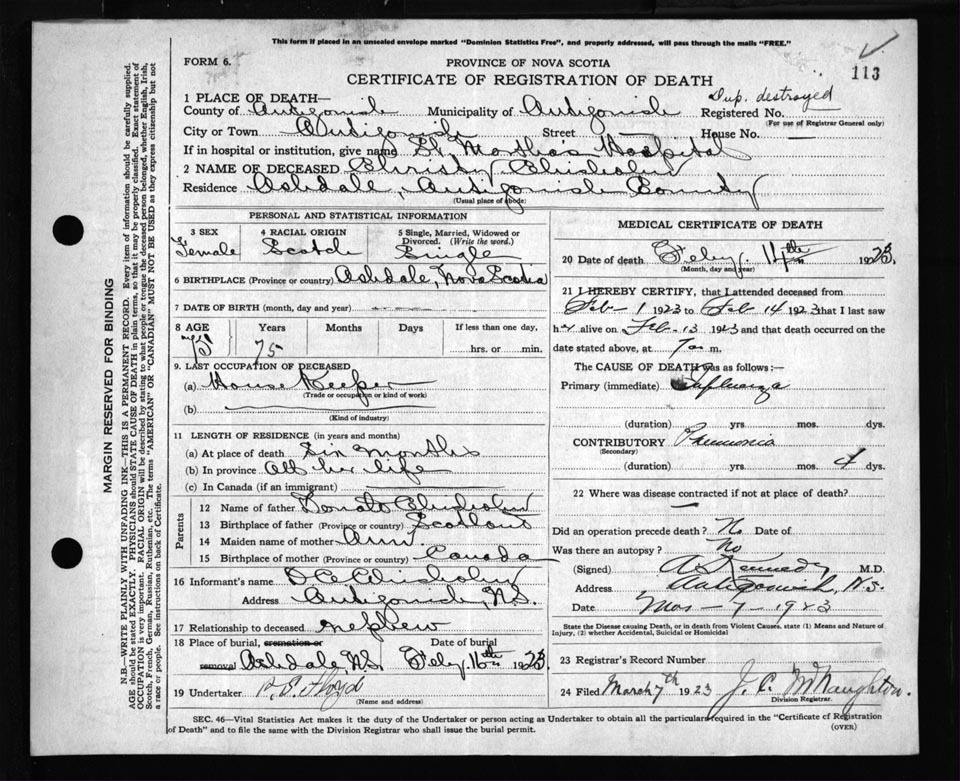 This form if placed in an unsealed envelope marked "Dominion Statistics Free", and properly addressed, will pass through the mails "FREE."
FORM 6.
PROVINCE OF NOVA SCOTIA
CERTIFICATE OF REGISTRATION OF DEATH
113
Dup. destroyed
1 PLACE OF DEATH—
County of Antigonish Municipality of Antigonish Registered No.
(For use of Registrar General only)
City or Town Antigonish Street — House No. —
If in hospital or institution, give name St. Martha's Hospital
2 NAME OF DECEASED Christy Chisholm
Residence Ashdale, Antigonish County
(Usual place of abode)
PERSONAL AND STATISTICAL INFORMATION
3 SEX
Female
4 RACIAL ORIGIN
Scotch
5 Single, Married, Widowed or Divorced. (Write the word.)
Single
6 BIRTHPLACE (Province or country) Ashdale, Nova Scotia
7 DATE OF BIRTH (month, day and year)
8 AGE Years Months Days If less than one day,
75 75 hrs. or min.
9. LAST OCCUPATION OF DECEASED
(a) House Keeper
(Trade or occupation or kind of work)
(b)
(Kind of industry)
11 LENGTH OF RESIDENCE (in years and months)
(a) At place of death Six months
(b) In province All her life
(c) In Canada (if an immigrant)
Parents
12 Name of father Donald Chisholm
13 Birthplace of father (Province or country) Scotland
14 Maiden name of mother Ann.
15 Birthplace of mother (Province or country) Canada
16 Informant's name D C Chisholm
Address Antigonish, N.S.
17 Relationship to deceased nephew
18 Place of burial, cremation or removal Ashdale N.S.
Date of burial Feby. 16th 1923.
19 Undertaker Floyd
(Name and address)
MEDICAL CERTIFICATE OF DEATH
20 Date of death Feby. 14th 1923.
(Month, day and year)
21 I HEREBY CERTIFY, that I attended deceased from
Feb 1 1923 to Feb 14 1923 that I last saw
her alive on Feb. 13 1923 and that death occurred on
date stated above, at 7 a m.
The CAUSE OF DEATH was as follows:—
Primary (immediate) Influenza
(duration) yrs. mos. dys.
CONTRIBUTORY Pneumonia
(Secondary)
(duration) yrs. mos. 4 dys.
22 Where was disease contracted if not at place of death?
—
Did an operation precede death? No Date of
Was there an autopsy? No
(Signed) Kennedy M.D.
Address Antigonish, N.S.
Date Mar - 7 - 1923
State the Disease causing Death, or in death from Violent Causes, state (1) Means and Nature of Injury, (2) whether Accidental, Suicidal or Homicidal
23 Registrar's Record Number
24 Filed March 7th 1923 J. C. McNaughton.
Division Registrar.
SEC. 46—Vital Statistics Act makes it the duty of the Undertaker or person acting as Undertaker to obtain all the particulars required in the "Certificate of Registration
of Death" and to file the same with the Division Registrar who shall issue the burial permit.
(OVER)
MARGIN RESERVED FOR BINDING
N.B.—WRITE PLAINLY WITH UNFADING INK—THIS IS A PERMANENT RECORD. Every item of information should be carefully supplied.
AGE should be stated EXACTLY. PHYSICIANS should STATE CAUSE OF DEATH in plain terms, so that it may be properly classified. Exact statement of
OCCUPATION is very important. RACIAL ORIGIN will be described by stating to what people or tongue the deceased person belonged, whether English, Irish,
Scotch, French, German, Russian, Ruthenian, etc. The terms "AMERICAN" or "CANADIAN" MUST NOT BE USED as they express citizenship but not
a race or people. See instructions on back of Certificate.